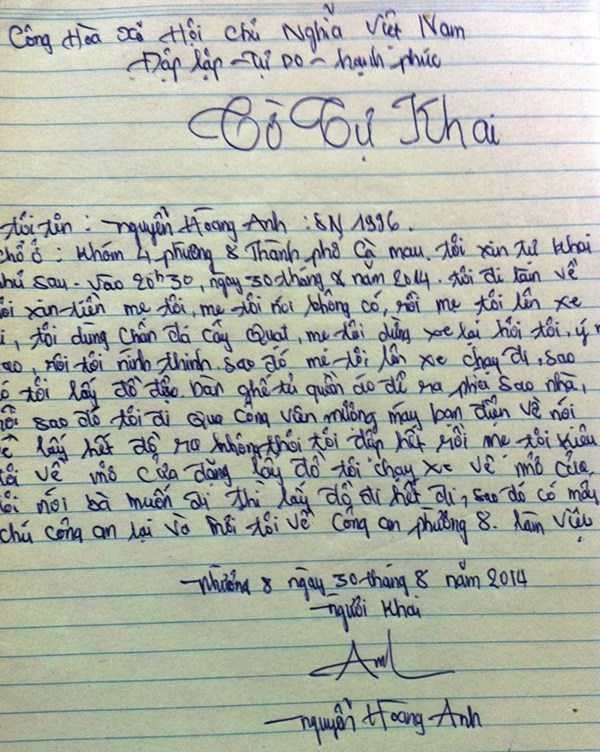 Công Hòà Xã Hội Chủ Nghĩa Việt Nam
Độp lập - Tự Do - hạnh phúc
Tờ Tự Khai
tôi tên : nguyễn Hoàng Anh : SN 1996.
chổ ở : Khóm 4 phường 8 Thành phố Cà mau. tôi xin tự Khai
như sau. vào 20h30, ngày 30 tháng 8 năm 2014. tôi đi làm về
tôi xin tiền mẹ tôi, mẹ tôi nói không có, rồi mẹ tôi lên xe
đi, tôi dùng chân đá cây Quạt, mẹ tôi dừng xe lại hỏi tôi, ý m
sao, rồi tôi nính thinh. sao đó mẹ tôi lên xe chạy đi, sao
đó tôi lấy đồ đạc. bàn ghế tủ quần áo để ra phía sao nhà,
rồi sao đó tôi đi qua công vân mường máy bạn điện về nói
về lấy hết đồ ra không thôi tôi đập hết rồi mẹ tôi kiêu
tôi về mở cửa đặng lấy đồ tôi chạy xe về mở cửa,
tôi nói bà muốn đi thì lấy đồ đi hết đi, sao đó có mấy
chú công an lại và mời tôi về công an phường 8. làm việc
phường 8 ngày 30 tháng 8 năm 2014
người khai
Anh
nguyễn Hoàng Anh